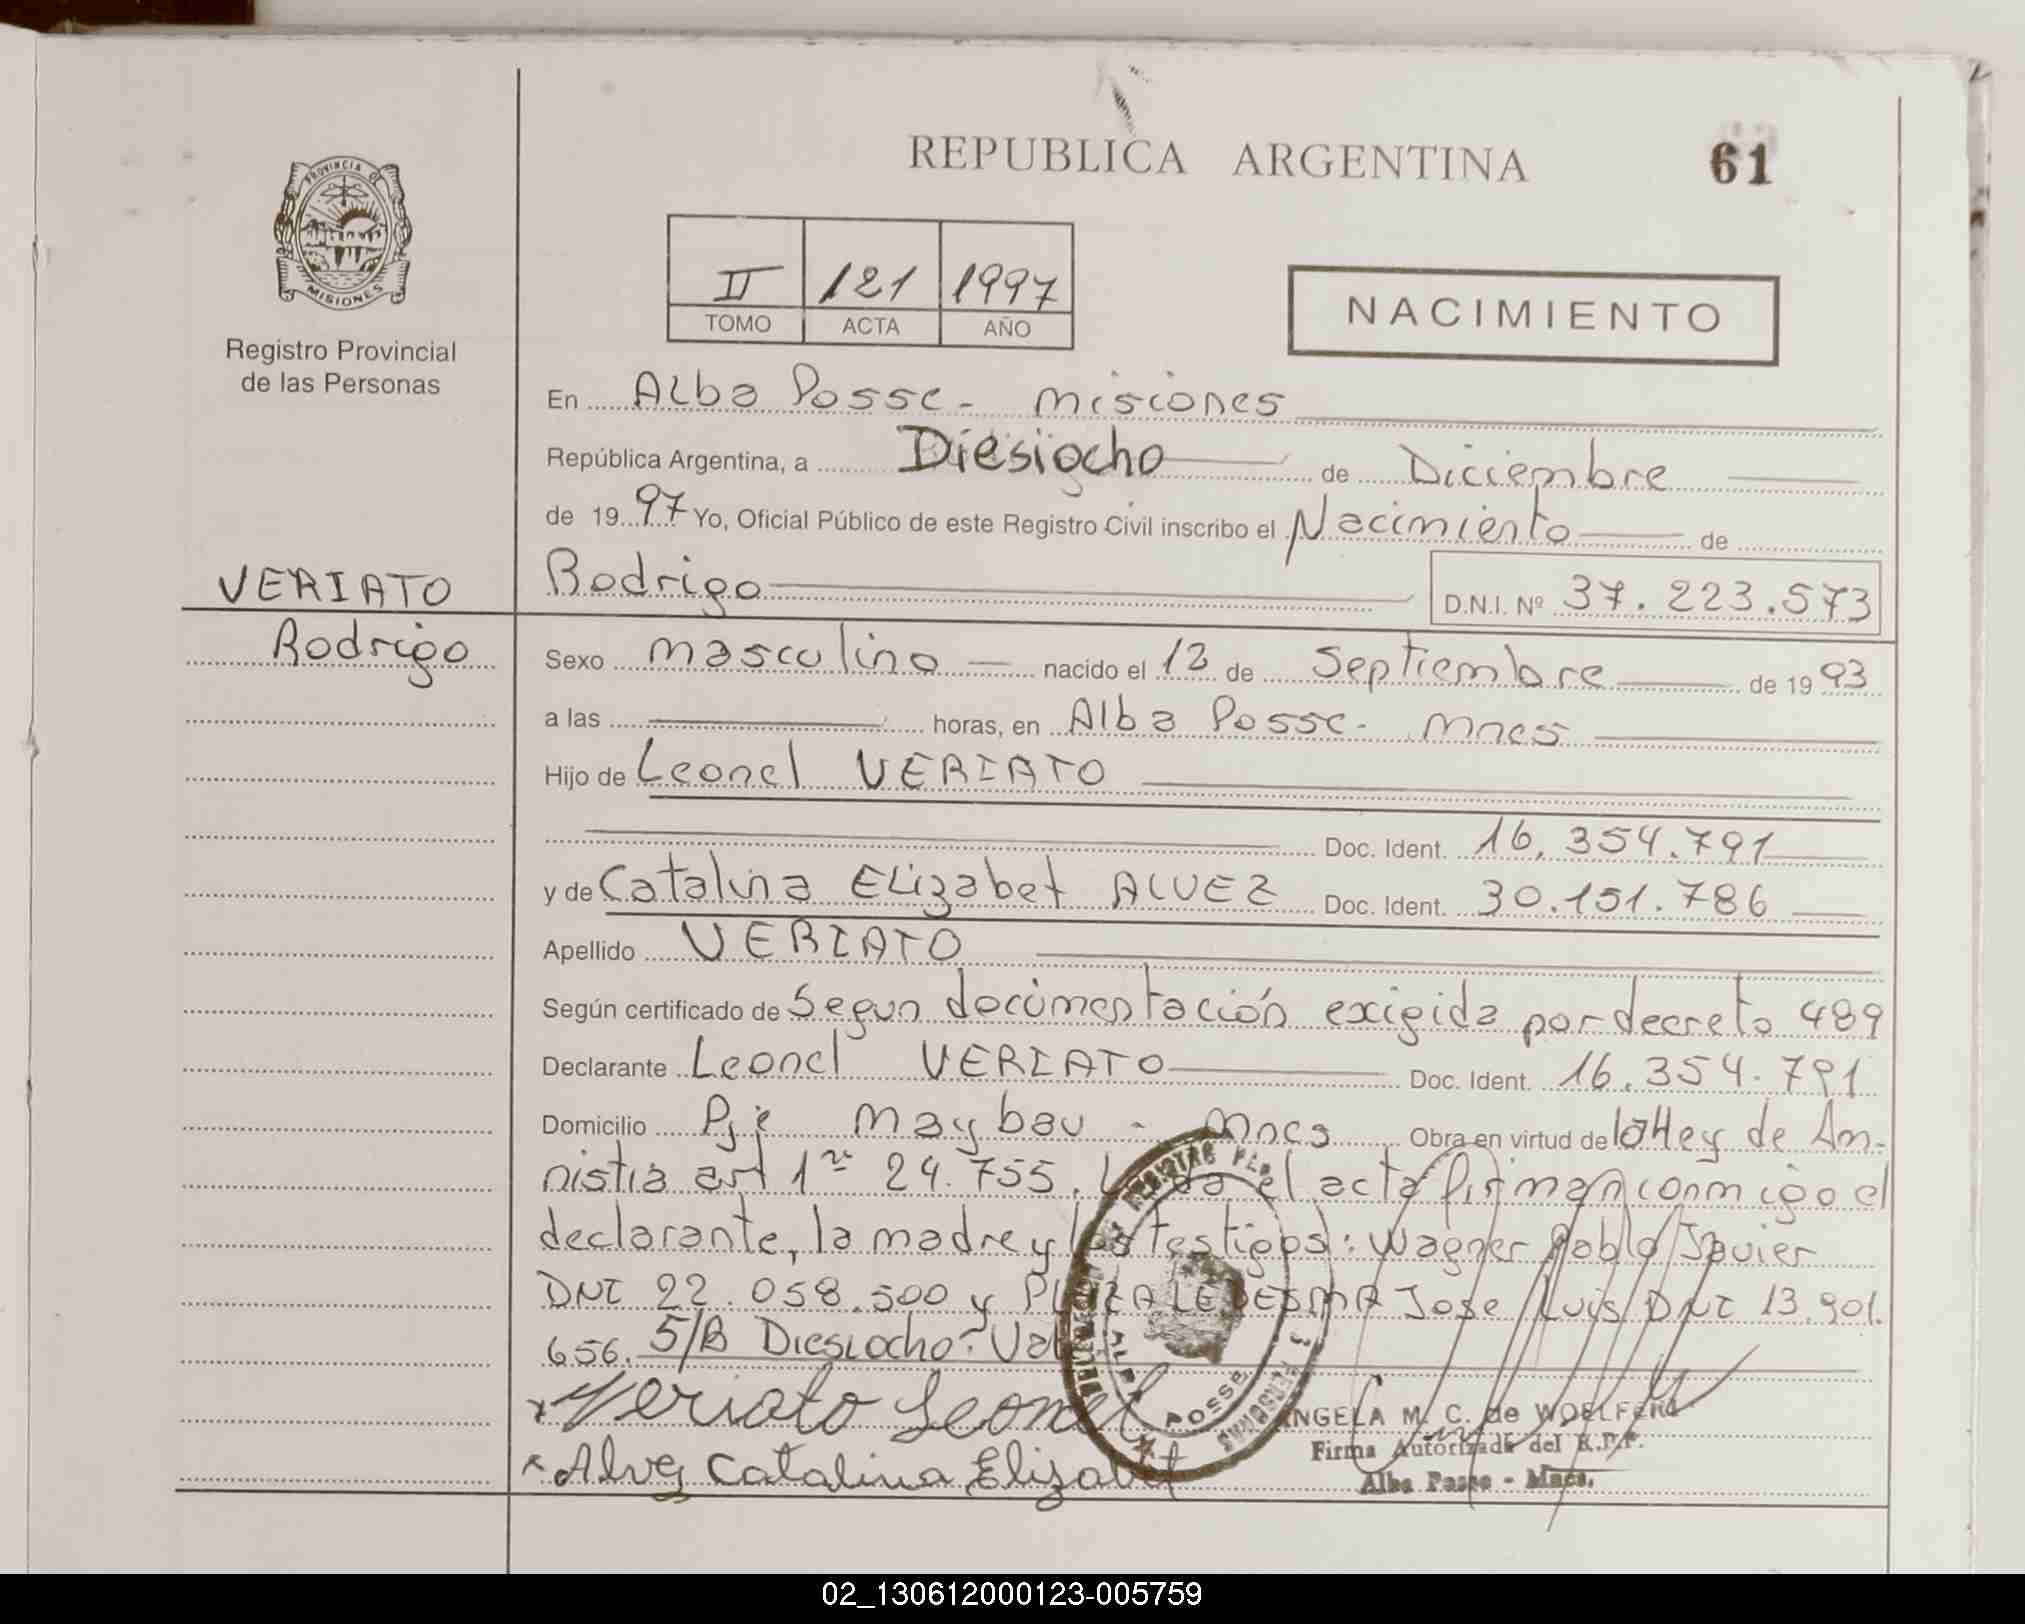 REPUBLICA ARGENTINA
61
PROVINCIA D
MISIONES
Registro Provincial
de las Personas
II 121 1997
TOMO ACTA AÑO
NACIMIENTO
En Alba Posse - Misiones
República Argentina, a Diesiocho de Diciembre
de 1997 Yo, Oficial Público de este Registro Civil inscribo el Nacimiento de
VERIATO
Rodrigo D.N.I. Nº 37.223.573
Rodrigo
Sexo masculino nacido el 12 de Septiembre de 1993
a las horas, en Alba Posse - Mnes
Hijo de Leonel VERIATO
Doc. Ident. 16.354.791
y de Catalina Elizabet ALVEZ Doc. Ident. 30.151.786
Apellido VERIATO
Según certificado de Segun documentación exigida por decreto 489
Declarante Leonel VERIATO Doc. Ident. 16.354.791
Domicilio Pje Maybau - Mnes Obra en virtud de la Ley de Am-
nistia art 1ro 24.755. el acta firman conmigo el
declarante, la madre y los testigos: Wagner Pablo Javier
DNI 22.058.500 y LEDESMA Jose Luis DNI 13.901.
656. S/B Diesiocho: Val
x Veriato Leonel
x Alvez Catalina Elizabet
POSSE
ANGELA M. C. de WOELFERT
Firma Autorizada del R.P.P.
Alba Posse - Mnes.
02_130612000123-005759